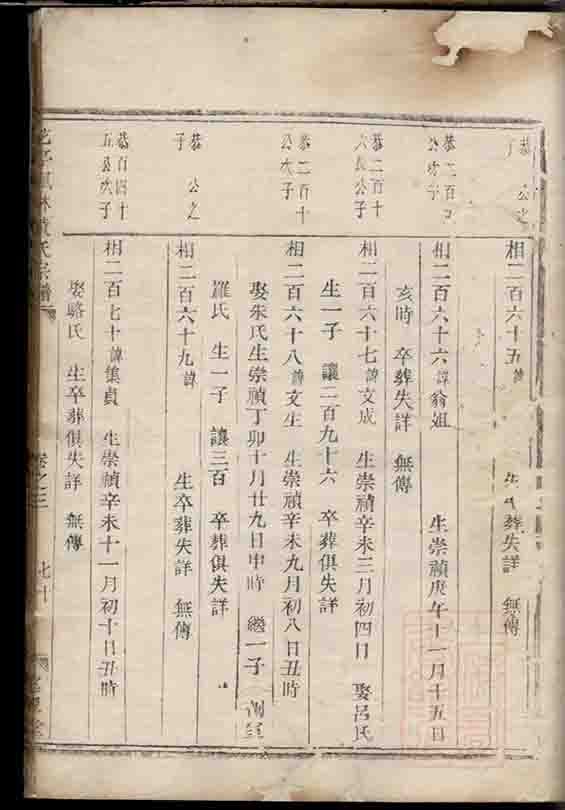 恭 公之
子
相二百六十五諱 生卒葬失詳 無傳
恭二百
公次子
相二百六十六諱翁姐 生崇禎庚午十一月十五日
亥時 卒葬失詳 無傳
恭二百十
六長公子
相二百六十七諱文成 生崇禎辛未三月初四日 娶呂氏
生一子 讓二百九十六 卒葬俱失詳
恭二百十
公次子
相二百六十八諱文生 生崇禎辛未九月初八日丑時
娶朱氏生崇禎丁卯十月廿九日申時 繼一子
羅氏 生一子 讓三百 卒葬俱失詳
恭 公之
子
相二百六十九諱 生卒葬失詳 無傳
恭百四十
五公次子
相二百七十諱集貞 生崇禎辛未十一月初十日丑時
娶駱氏 生卒葬俱失詳 無傳
林黃氏宗譜 卷之三 七十